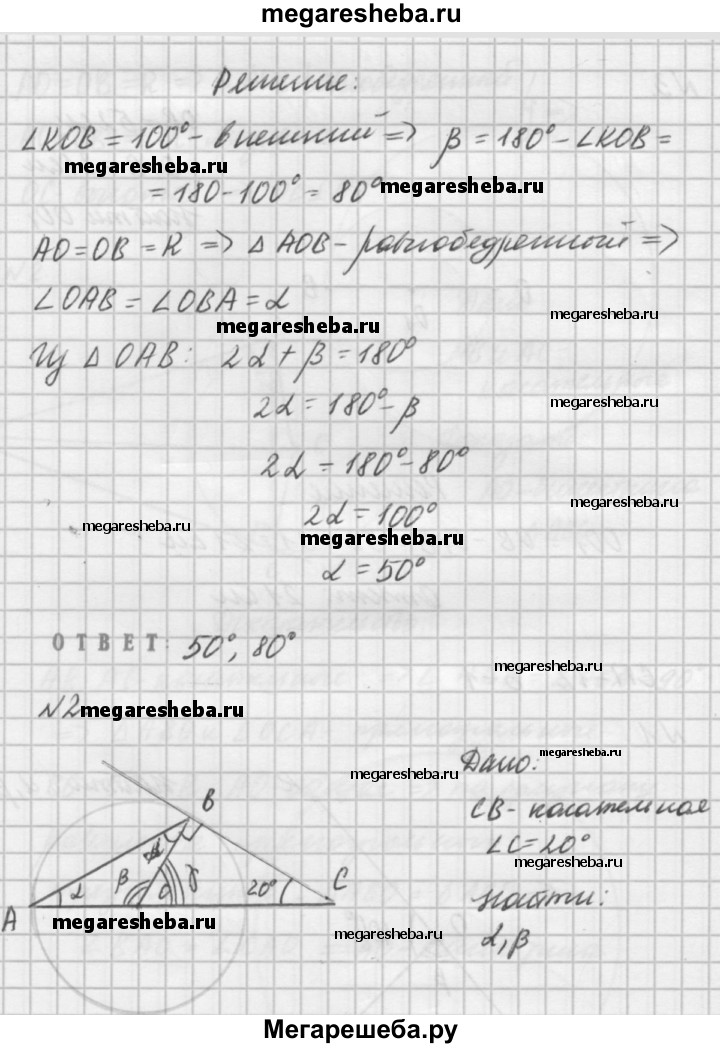 megaresheba.ru
Решение:
∠KOB = 100° - внешний => β = 180° - ∠KOB =
megaresheba.ru
= 180 - 100° = 80° megaresheba.ru
AO = OB = R => Δ AOB - равнобедренный =>
∠OAB = ∠OBA = α
megaresheba.ru
Из Δ OAB: 2α + β = 180°
2α = 180° - β
megaresheba.ru
2α = 180° - 80°
megaresheba.ru
2α = 100°
megaresheba.ru
megaresheba.ru
α = 50°
ОТВЕТ: 50°, 80°
megaresheba.ru
№2 megaresheba.ru
Дано: megaresheba.ru
megaresheba.ru
B
CB - касательная
∠C = 20°
megaresheba.ru
α β γ 20° C
A
Найти:
megaresheba.ru
α, β
megaresheba.ru
Мегарешеба.ру